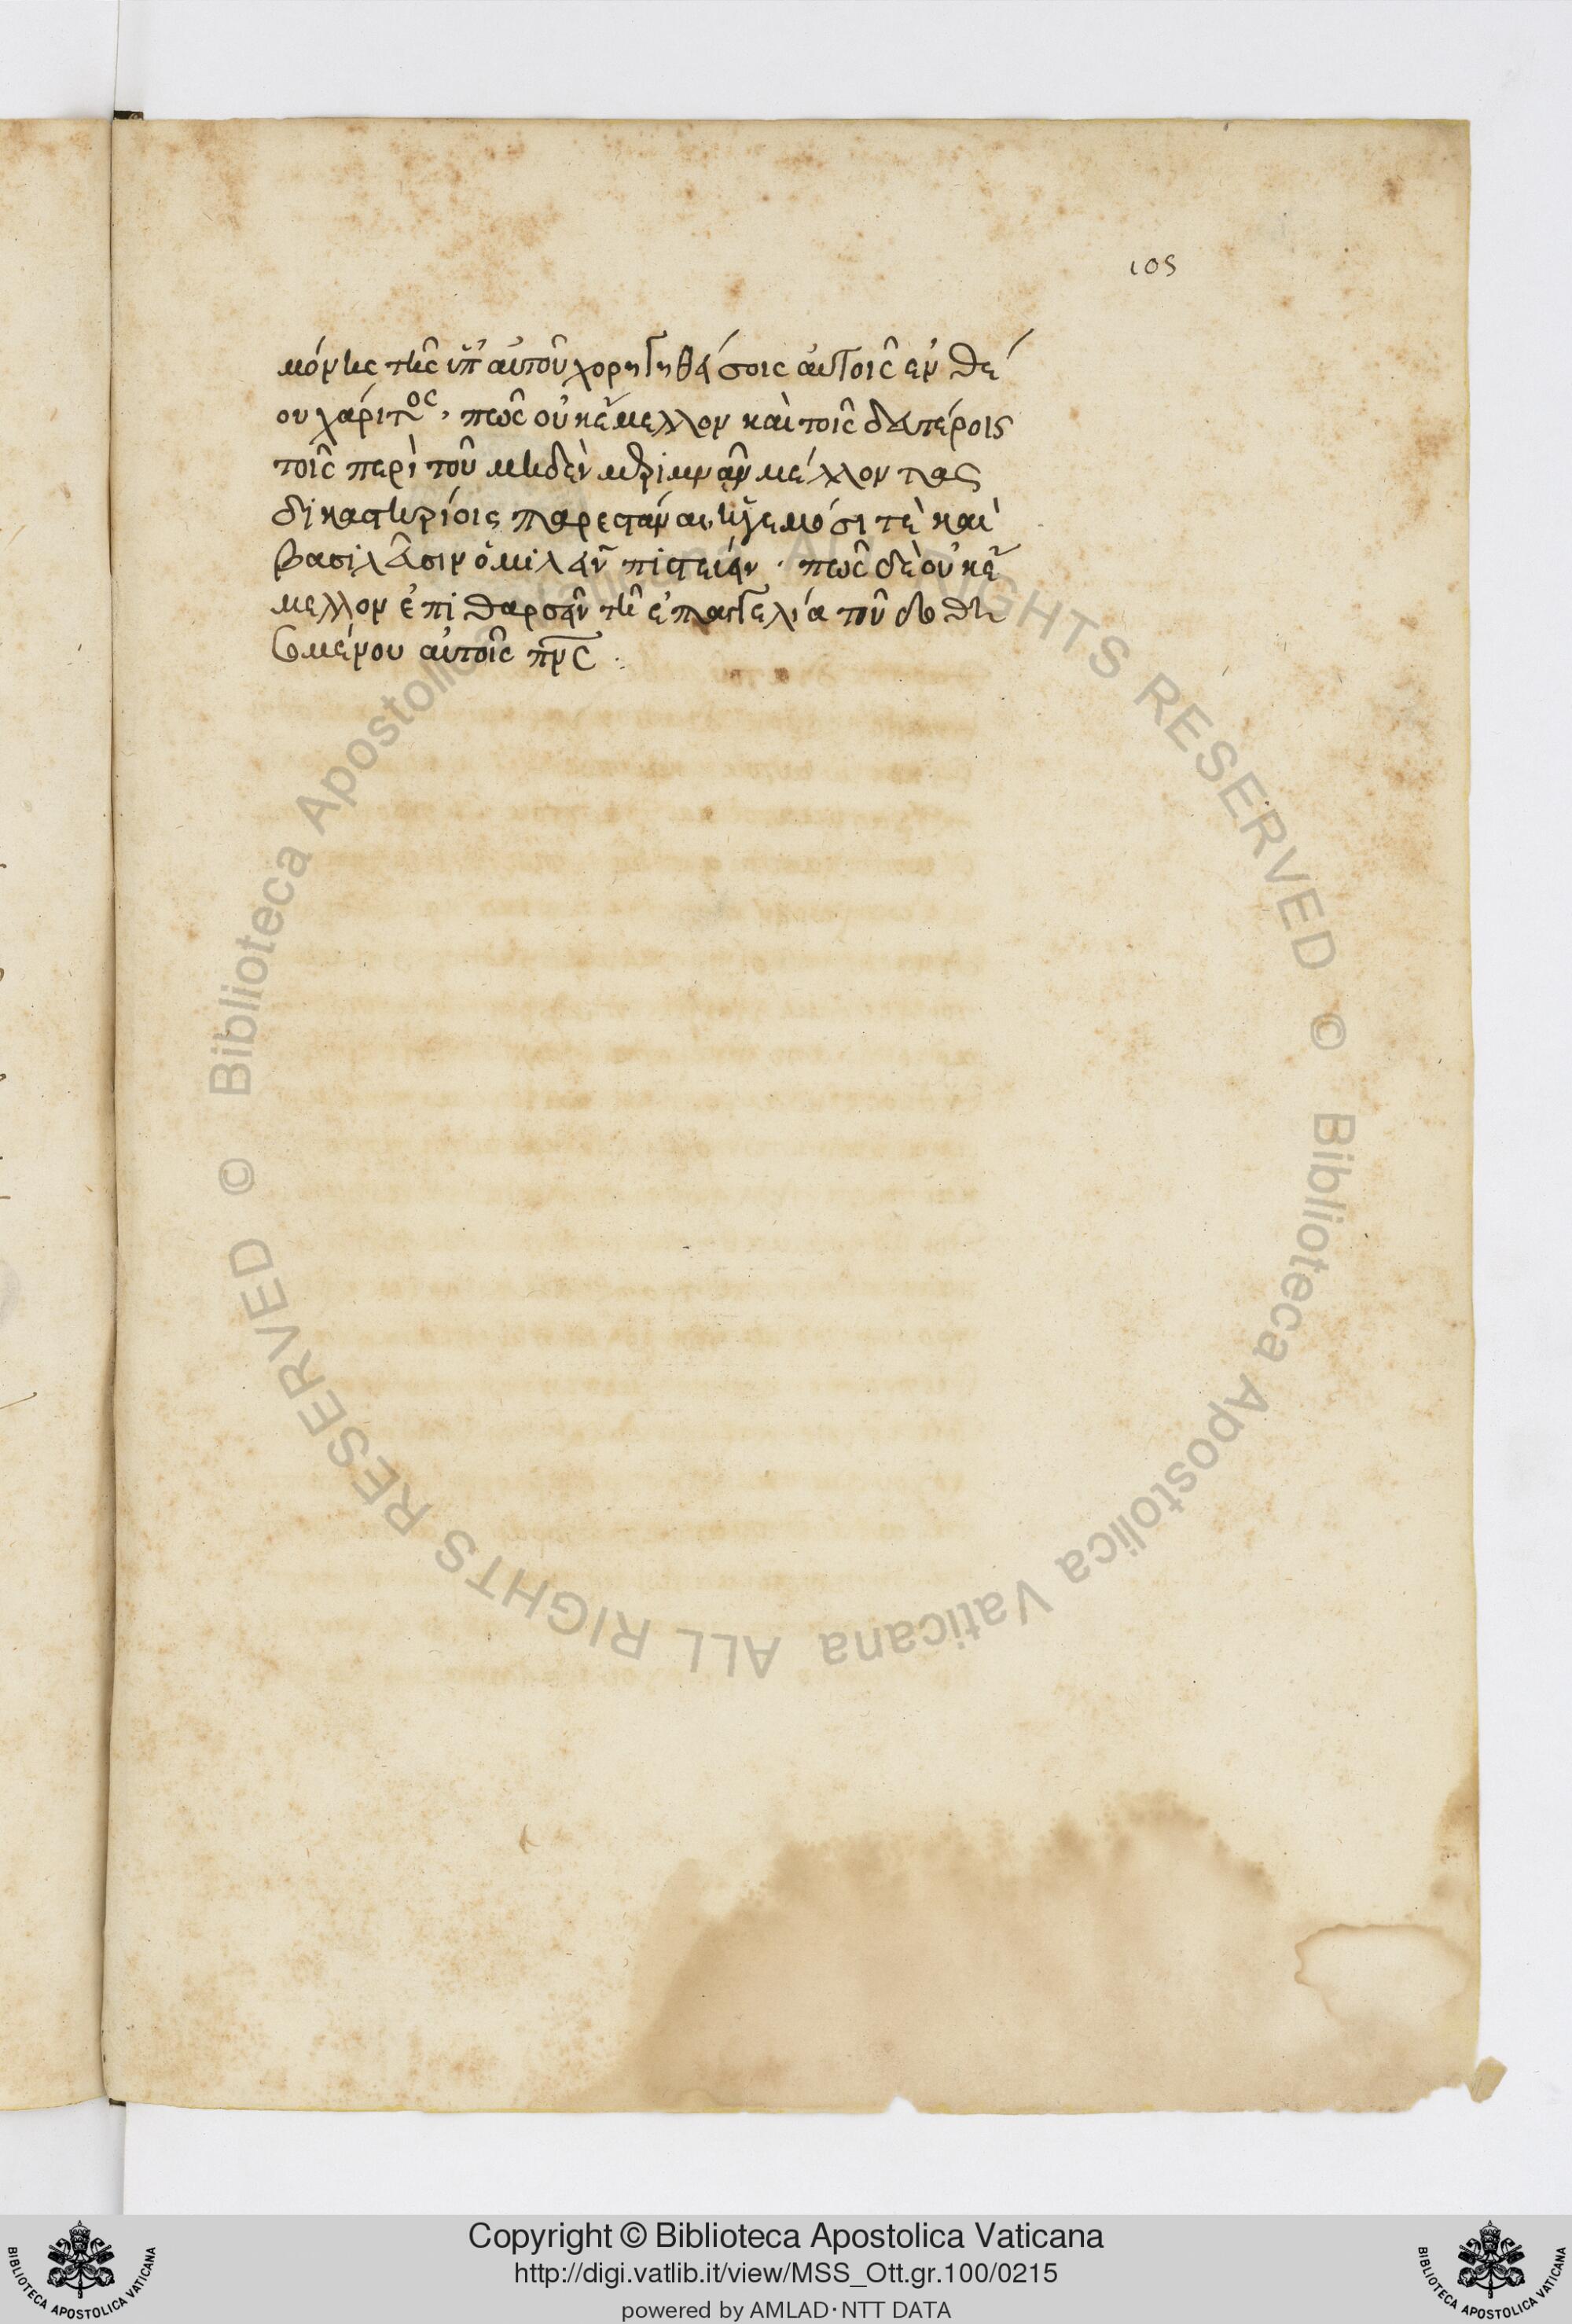 105
μόνης τῆς ὑπ' αὐτοῦ χορηγηθείσοις αὐτοῖς ἐν θέ
ου χάριτος, πῶς οὐκ ἔμελλον καὶ τοῖς δευτέροις
τοῖς περὶ τοῦ μηδὲν μεριμνᾶν μέλλοντας
δικαστηρίοις παρεστάναι, ἡγεμόσι τὲ καὶ
βασιλεῦσιν ὁμιλεῖν πιστεύειν. πῶς δὲ οὐκ ἔ
μελλον ἐπιθαρσεῖν τῆ ἐπαγγελία τοῦ δοθη
σομένου αὐτοῖς πνς
© Biblioteca Apostolica Vaticana ALL RIGHTS RESERVED
© Biblioteca Apostolica Vaticana ALL RIGHTS RESERVED
Copyright © Biblioteca Apostolica Vaticana
http://digi.vatlib.it/view/MSS_Ott.gr.100/0215
powered by AMLAD·NTT DATA
BIBLIOTECA APOSTOLICA VATICANA
BIBLIOTECA APOSTOLICA VATICANA